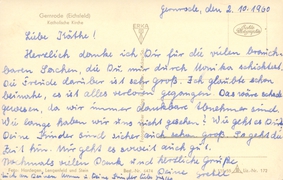 Gernrode (Eichsfeld)
Katholische Kirche
Gernrode, den 2. 10. 1960
Echte Photographie
Liebe Käthe!
Herzlich danke ich Dir für die vielen brauch-
baren Sachen, die Du mir durch Monika schicktest.
Die Freude darüber ist sehr groß. Ich glaubte schon
beinahe, es ist alles verloren gegangen. Das wäre schade
gewesen, da wir immer dankbare Abnehmer sind.
Wie lange haben wir uns nicht gesehen? Wie geht es Dir?
Deine Kinder sind sicher auch schon groß. So geht die
Zeit hin. Mir geht es soweit auch gut.
Nochmals vielen Dank und herzliche Grüße
Deine
auch an Deinen Mann u. Deine Kinder